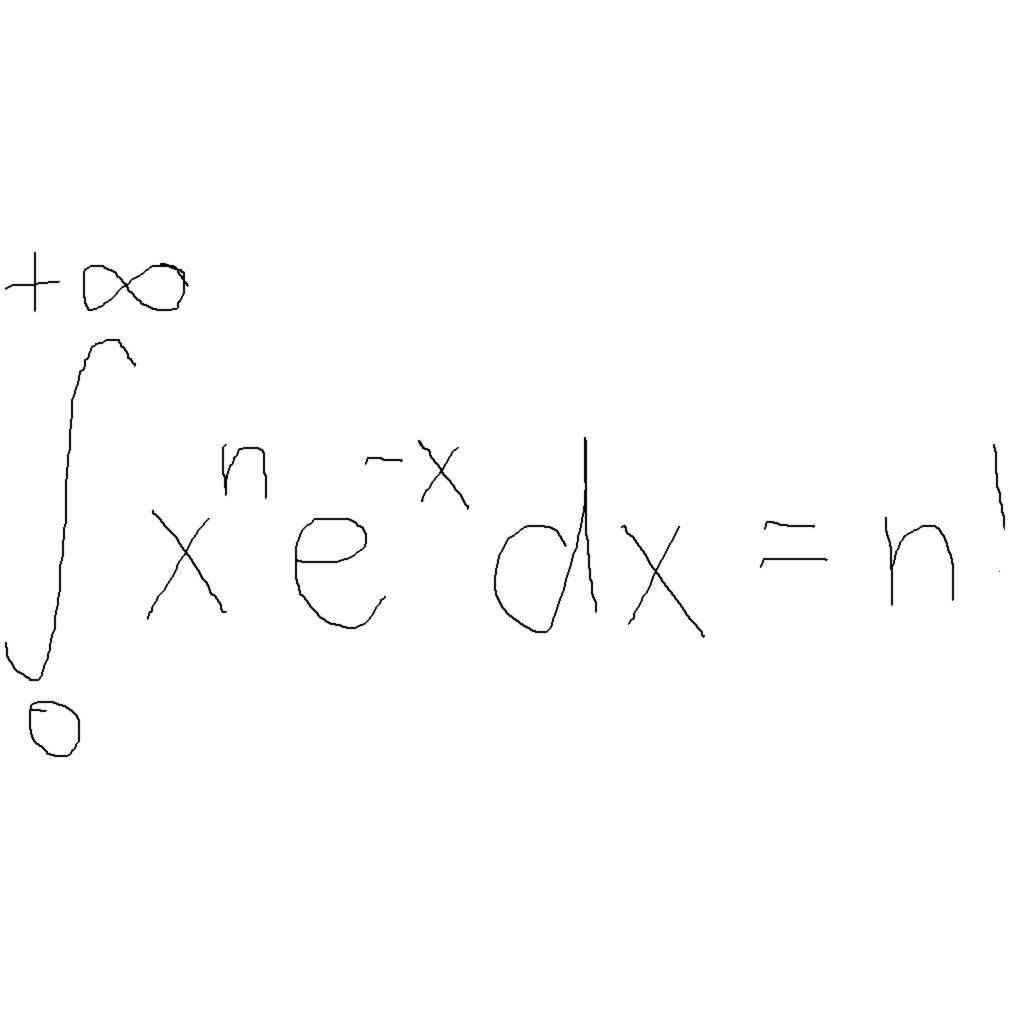 ∫₀^{+∞} xⁿe⁻ˣdx = n!